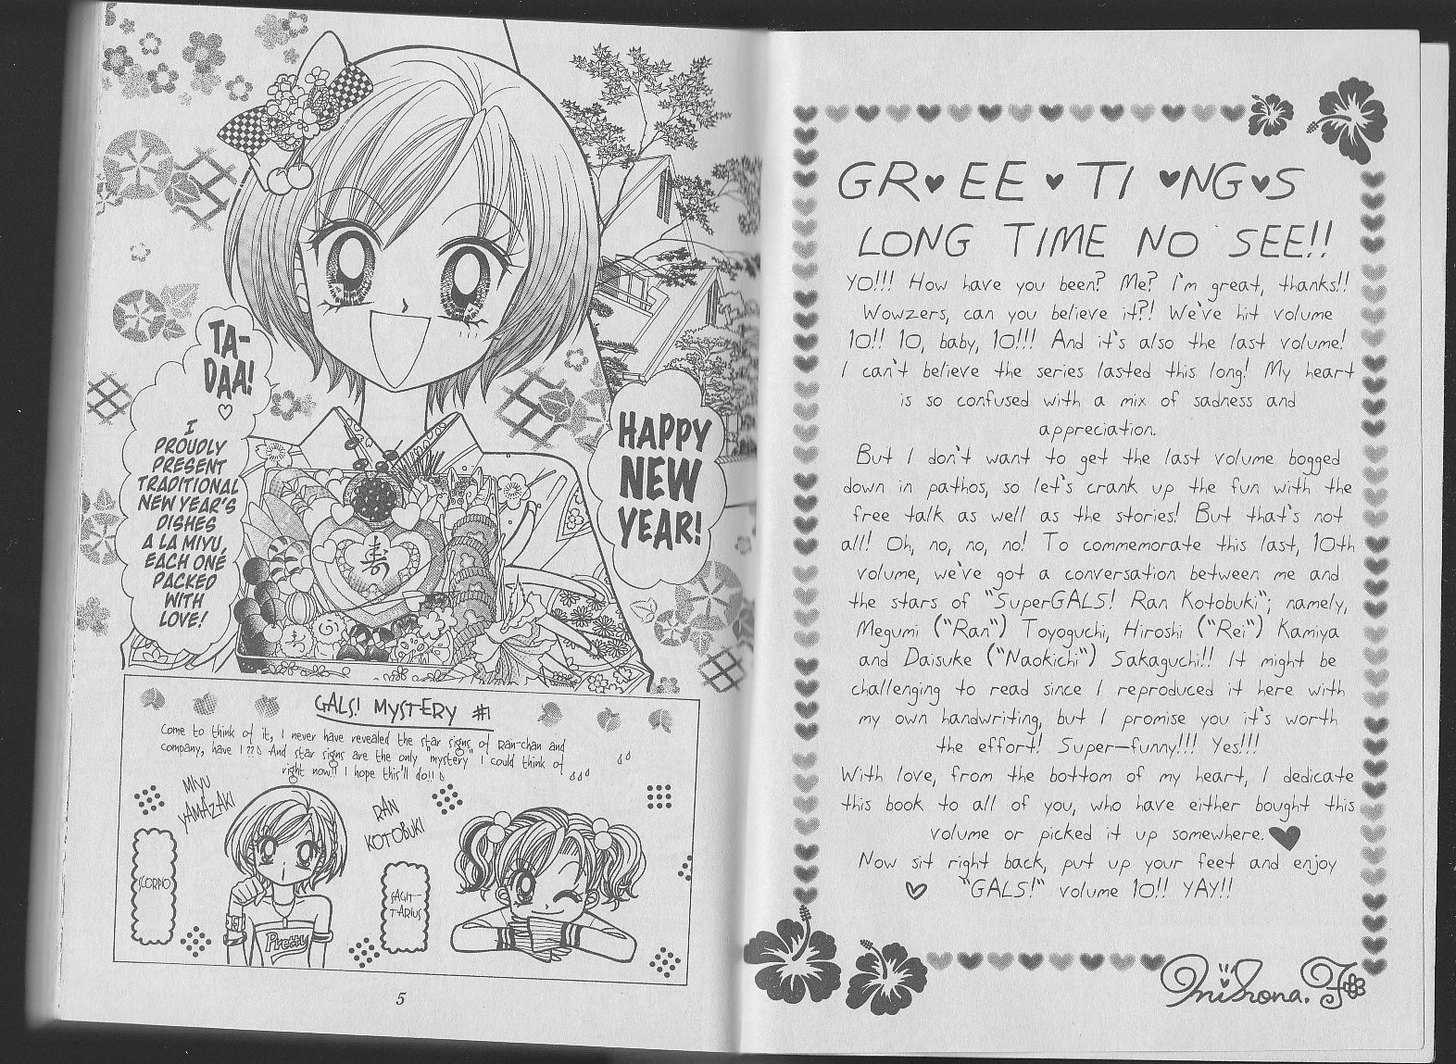 TA-
DAA!
♡
I
PROUDLY
PRESENT
TRADITIONAL
NEW YEAR'S
DISHES
A LA MIYU,
EACH ONE
PACKED
WITH
LOVE!
HAPPY
NEW
YEAR!
寿
GALS! MYSTERY #1
Come to think of it, I never have revealed the star signs of Ran-chan and
company, have I?? And star signs are the only "mystery" I could think of
right now!! I hope this'll do!!
MIYU
YAMAZAKI
SCORPIO
Pretty
RAN
KOTOBUKI
SAGIT-
TARIUS
5
GR♥EE♥TI♥NG♥S
LONG TIME NO SEE!!
YO!!! How have you been? Me? I'm great, thanks!!
Wowzers, can you believe it?! We've hit volume
10!! 10, baby, 10!!! And it's also the last volume!
I can't believe the series lasted this long! My heart
is so confused with a mix of sadness and
appreciation.
But I don't want to get the last volume bogged
down in pathos, so let's crank up the fun with the
free talk as well as the stories! But that's not
all! Oh, no, no, no! To commemorate this last, 10th
volume, we've got a conversation between me and
the stars of "SuperGALS! Ran Kotobuki"; namely,
Megumi ("Ran") Toyoguchi, Hiroshi ("Rei") Kamiya
and Daisuke ("Naokichi") Sakaguchi!! It might be
challenging to read since I reproduced it here with
my own handwriting, but I promise you it's worth
the effort! Super-funny!!! Yes!!!
With love, from the bottom of my heart, I dedicate
this book to all of you, who have either bought this
volume or picked it up somewhere.♥
Now sit right back, put up your feet and enjoy
♡ "GALS!" volume 10!! YAY!!
Mihona.F